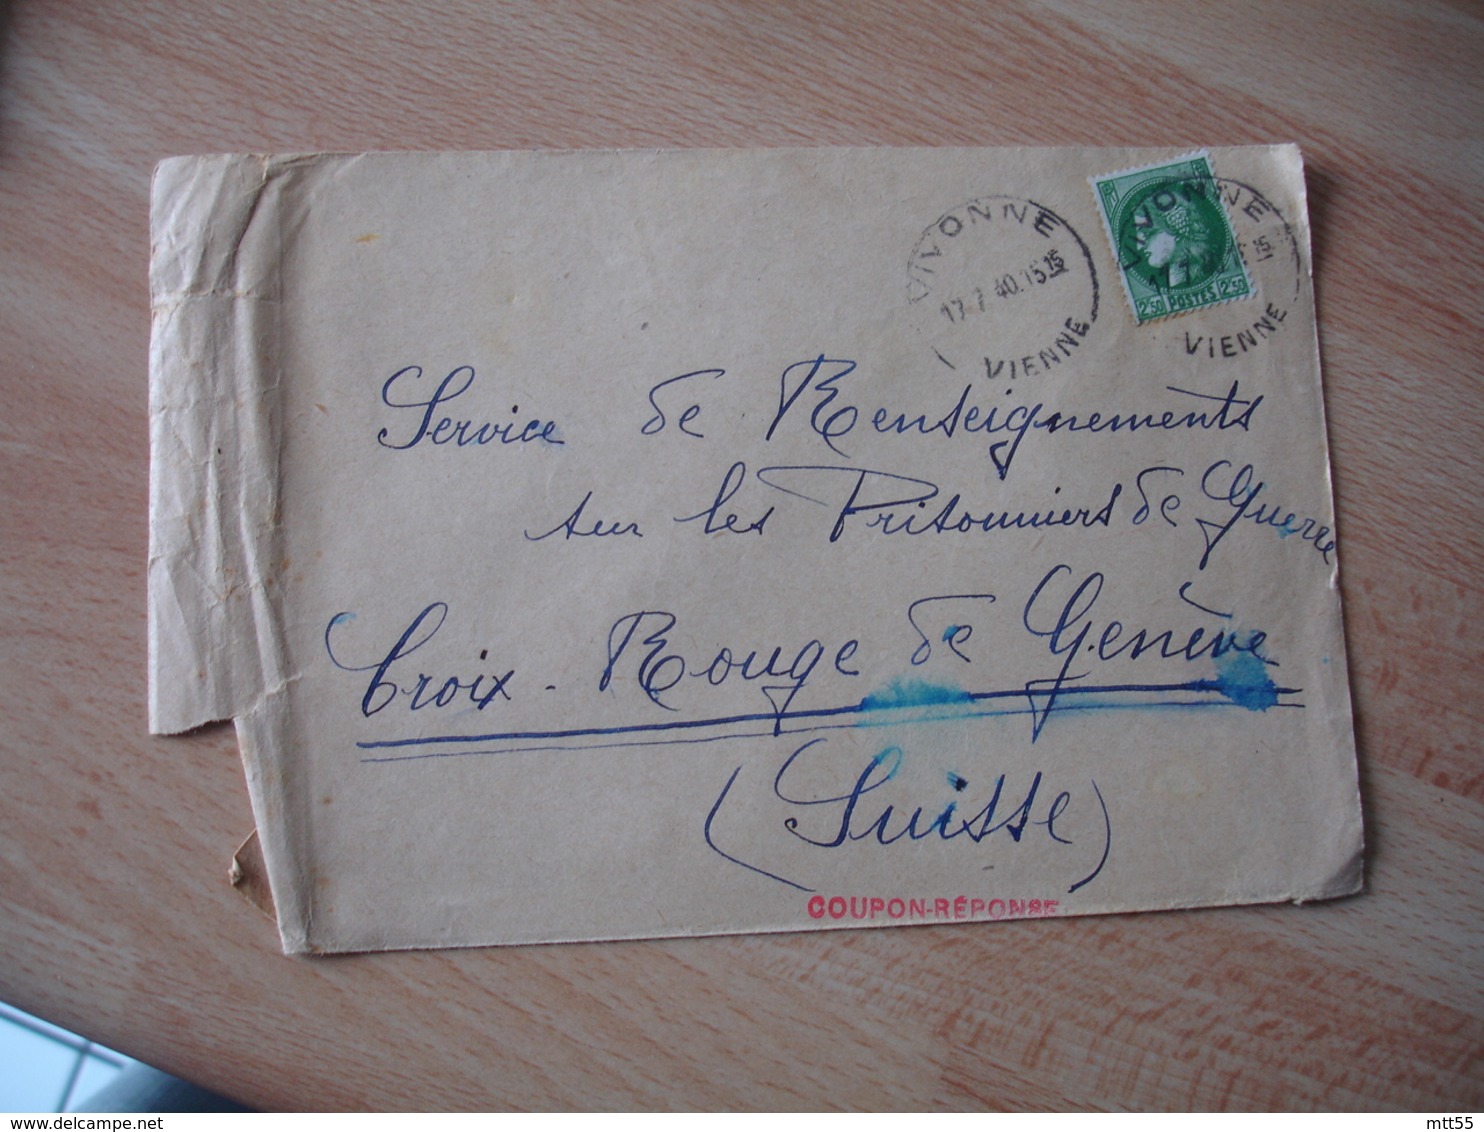 VIVONNE
17-7 40.15 15
VIENNE
VIVONNE
VIENNE
2F50 POSTES 2F50
Service de Renseignements
sur les Prisonniers de Guerre
Croix-Rouge de Genève
(Suisse)
COUPON-RÉPONSE
delcampe.net
mtt55